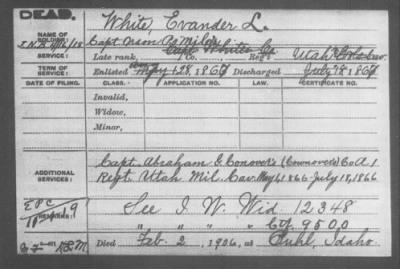 DEAD.
White, Evander L.
NAME OF SOLDIER:
Capt Orson
Late rank, Co. Reg't Utah
SERVICE:
TERM OF SERVICE:
Enlisted May 1, 1866 Discharged July 18, 1866
DATE OF FILING. CLASS. APPLICATION NO. LAW. CERTIFICATE NO.
Invalid,
Widow,
Minor,
ADDITIONAL SERVICES:
Capt. Abraham G Conover's (Cownover's) Co A 1
Regt. Utah Mil. Cav. May 1, 1866 - July 18, 1866
See I. W. Wid. 12348
" " " Ctf. 9500
Died Feb. 2, 1906, at Buhl, Idaho.